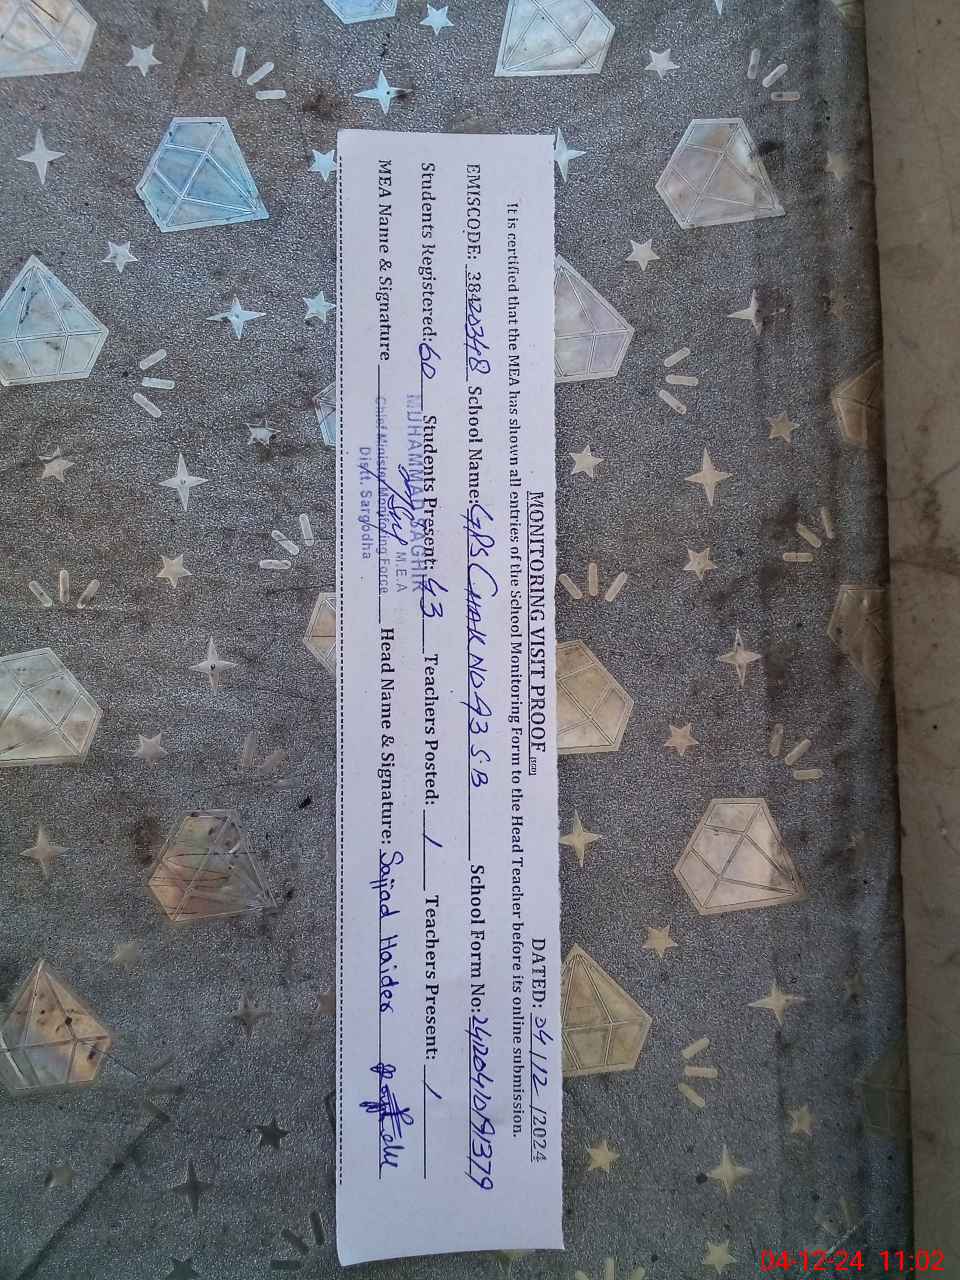 MONITORING VISIT PROOF DATED: 04/12/2024
It is certified that the MEA has shown all entries of the School Monitoring Form to the Head Teacher before its online submission.
EMISCODE: 38420348 School Name: GPS CHAK NO 93 S.B School Form No:
Students Registered: 60 Students Present: 43 Teachers Posted: 1 Teachers Present: 1
MEA Name & Signature Head Name & Signature: Sajjad Haider
MUHAMMAD SAGHIR
M.E.A
Chief Minister Monitoring Force
Distt. Sargodha
04-12-24 11:02